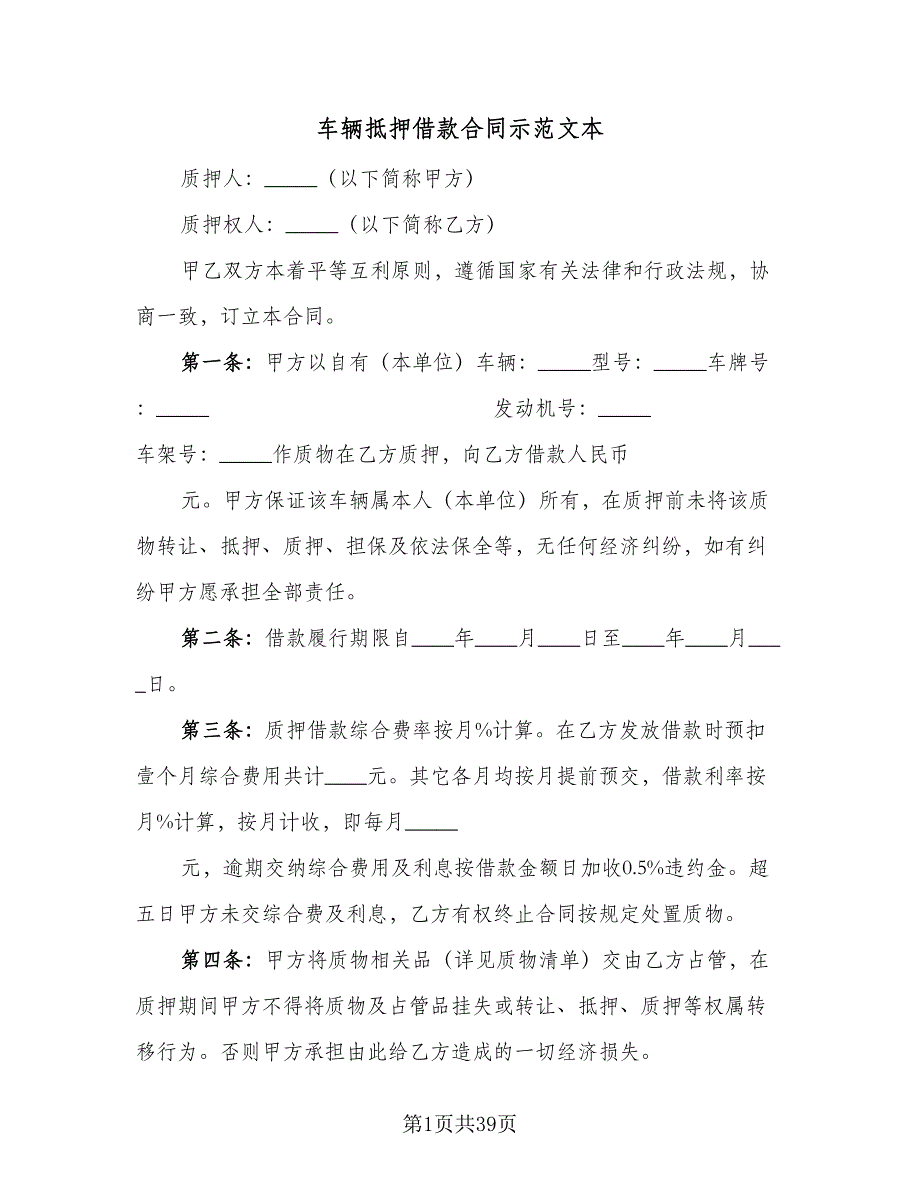 车辆抵押借款合同示范文本
质押人：_____（以下简称甲方）
质押权人：_____（以下简称乙方）
甲乙双方本着平等互利原则，遵循国家有关法律和行政法规，协
商一致，订立本合同。
第一条：甲方以自有（本单位）车辆：_____型号：_____车牌号
：_____ 发动机号：_____
车架号：_____作质物在乙方质押，向乙方借款人民币
元。甲方保证该车辆属本人（本单位）所有，在质押前未将该质
物转让、抵押、质押、担保及依法保全等，无任何经济纠纷，如有纠
纷甲方愿承担全部责任。
第二条：借款履行期限自____年____月____日至____年____月___
_日。
第三条：质押借款综合费率按月%计算。在乙方发放借款时预扣
壹个月综合费用共计____元。其它各月均按月提前预交，借款利率按
月%计算，按月计收，即每月_____
元，逾期交纳综合费用及利息按借款金额日加收0.5%违约金。超
五日甲方未交综合费及利息，乙方有权终止合同按规定处置质物。
第四条：甲方将质物相关品（详见质物清单）交由乙方占管，在
质押期间甲方不得将质物及占管品挂失或转让、抵押、质押等权属转
移行为。否则甲方承担由此给乙方造成的一切经济损失。
第1页共39页